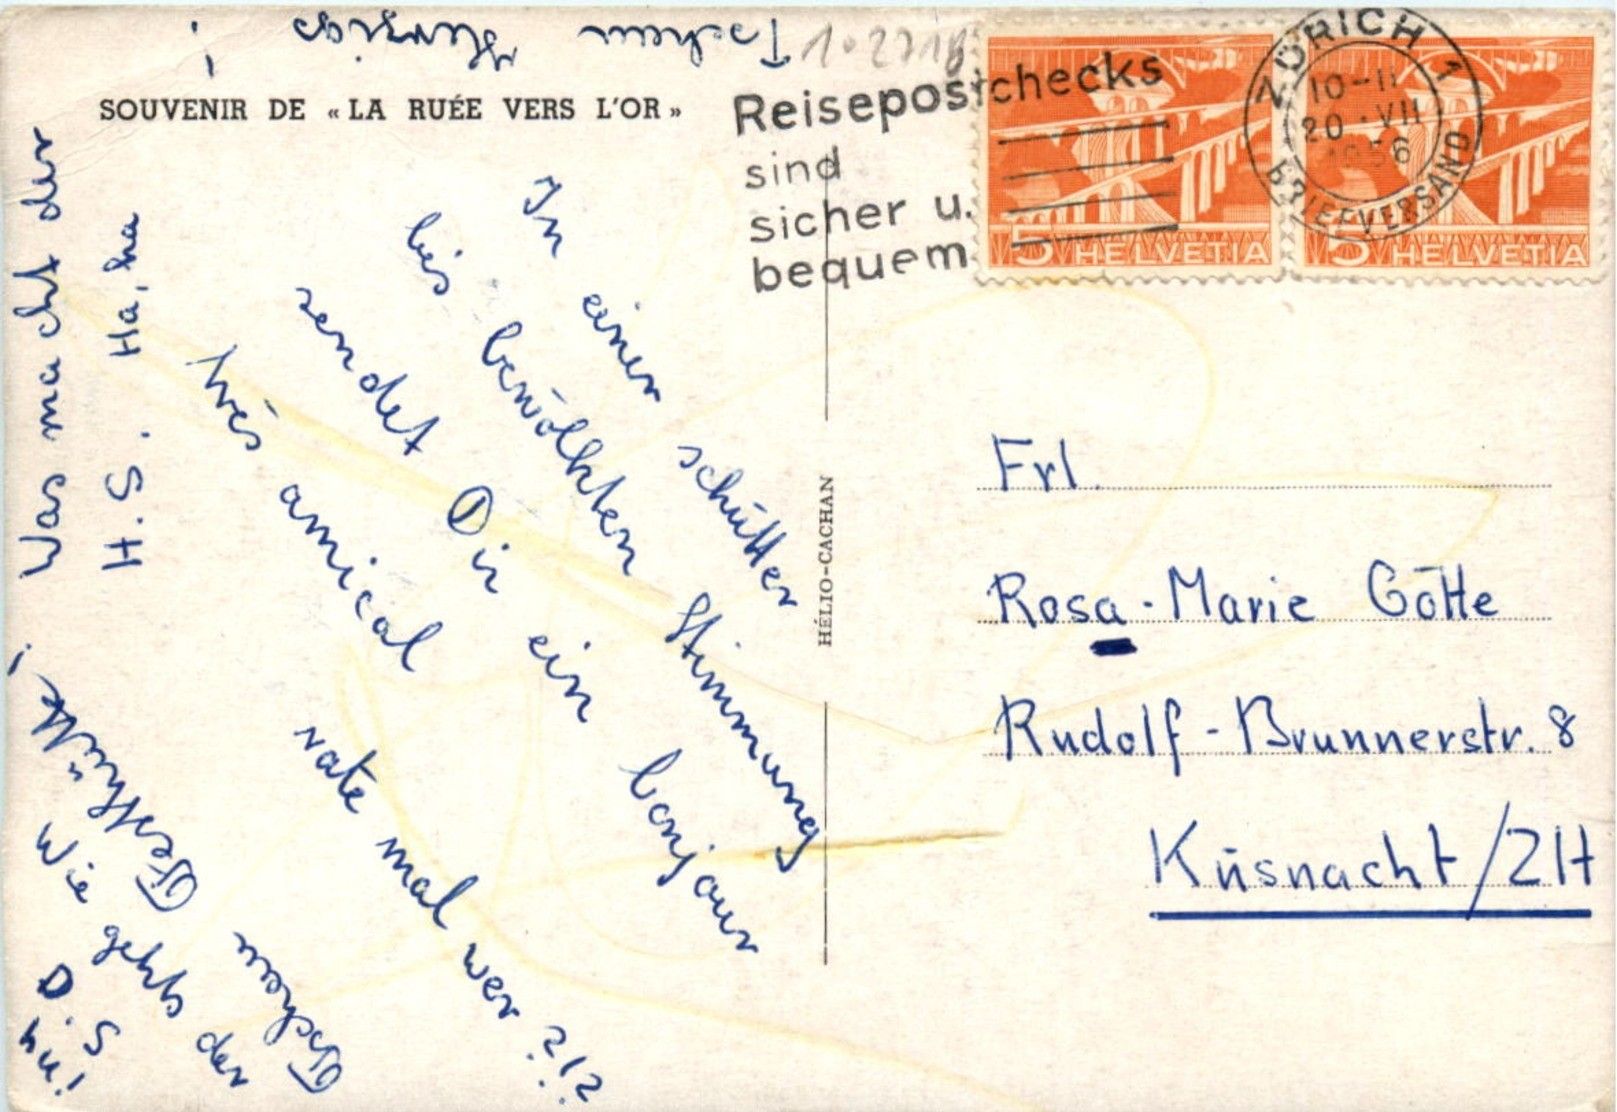 SOUVENIR DE « LA RUÉE VERS L'OR »
In einer schütter
bis bewölkten Stimmung
sendet Dir ein bonjour
très amical
rate mal wer ?!?
Was macht der
H.S. Ha, ha
Wie gehts der
D. S
hü
Tschau
HÉLIO-CACHAN
1.2718
Reisepostchecks
sind
sicher u.
bequem
ZÜRICH 1
10-11
20.VII
1956
BRIEFVERSAND
5 HELVETIA
5 HELVETIA
Frl.
Rosa-Marie Götte
Rudolf-Brunnerstr. 8
Küsnacht/ZH